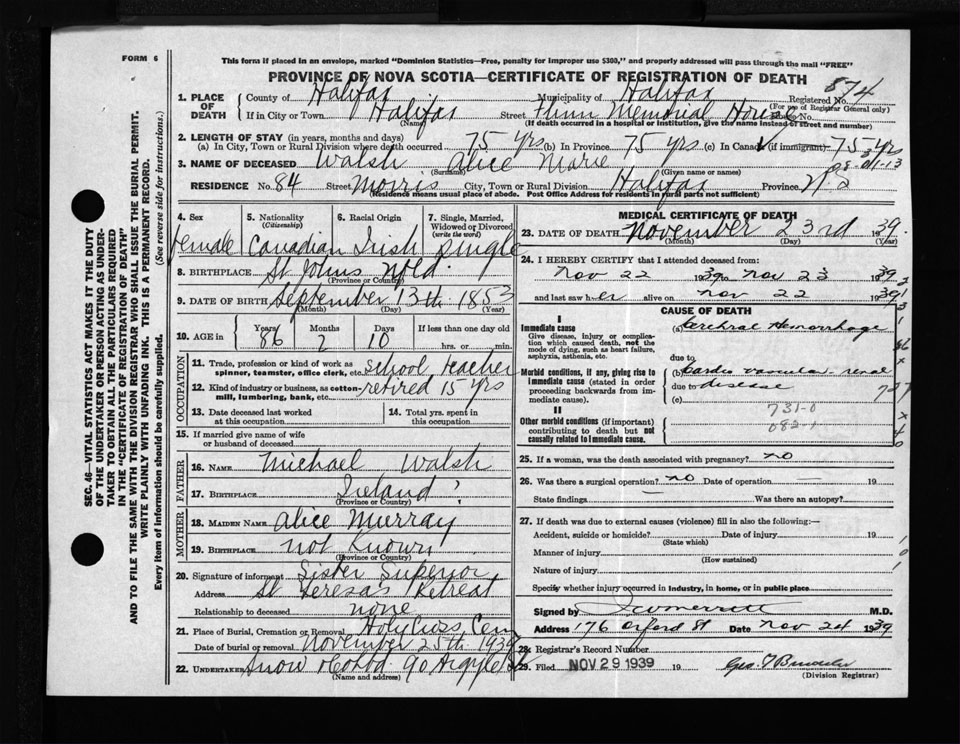 FORM 6
This form if placed in an envelope, marked "Dominion Statistics—Free, penalty for improper use $300," and properly addressed will pass through the mail "FREE"
PROVINCE OF NOVA SCOTIA—CERTIFICATE OF REGISTRATION OF DEATH
SEC. 46—VITAL STATISTICS ACT MAKES IT THE DUTY
OF THE UNDERTAKER OR PERSON ACTING AS UNDER-
TAKER TO OBTAIN ALL THE PARTICULARS REQUIRED
IN THE "CERTIFICATE OF REGISTRATION OF DEATH"
AND TO FILE THE SAME WITH THE DIVISION REGISTRAR WHO SHALL ISSUE THE BURIAL PERMIT.
WRITE PLAINLY WITH UNFADING INK. THIS IS A PERMANENT RECORD.
Every item of information should be carefully supplied. (See reverse side for instructions.)
1. PLACE OF DEATH County of Halifax Municipality of Halifax Registered No. 874
(For use of Registrar General only)
If in City or Town Halifax Street Memorial House No.
(Name) (If death occurred in a hospital or institution, give the name instead of street and number)
2. LENGTH OF STAY (in years, months and days)
(a) In City, Town or Rural Division where death occurred 75 yrs (b) In Province 75 yrs (c) In Canada (if immigrant) 75 yrs
3. NAME OF DECEASED Walsh Alice Marie
(Surname) (Given name or names)
RESIDENCE No. 84 Street Morris City, Town or Rural Division Halifax Province N S
(Residence means usual place of abode. Post Office Address for Residents in rural parts not sufficient)
4. Sex female
5. Nationality (Citizenship) Canadian
6. Racial Origin Irish
7. Single, Married, Widowed or Divorced (write the word) Single
8. BIRTHPLACE St Johns Nfld.
(Province or Country)
9. DATE OF BIRTH September 13th 1853
(Month) (Day) (Year)
10. AGE in Years 86 Months 2 Days 10 If less than one day old hrs. or min.
OCCUPATION
11. Trade, profession or kind of work as spinner, teamster, office clerk, etc. School teacher
12. Kind of industry or business, as cotton-mill, lumbering, bank, etc. retired 15 yrs
13. Date deceased last worked at this occupation
14. Total yrs. spent in this occupation
15. If married give name of wife or husband of deceased
FATHER
16. NAME Michael Walsh
17. BIRTHPLACE Ireland
(Province or Country)
MOTHER
18. MAIDEN NAME Alice Murray
19. BIRTHPLACE not Known
(Province or Country)
20. Signature of informant Sister Superior
Address St Teresa's Retreat
Relationship to deceased none
21. Place of Burial, Cremation or Removal Holy Cross Cem
Date of burial or removal November 25th 1939
22. UNDERTAKER Snow & Co Ltd 90 Argyle St
(Name and address)
MEDICAL CERTIFICATE OF DEATH
23. DATE OF DEATH November 23rd 1939.
(Month) (Day) (Year)
24. I HEREBY CERTIFY that I attended deceased from:
Nov 22 1939 to Nov 23 1939
and last saw her alive on Nov 22 1939
CAUSE OF DEATH
I
Immediate cause (a) Cerebral Hemorrhage
Give disease, injury or complication which caused death, not the mode of dying, such as heart failure, asphyxia, asthenia, etc.
due to
Morbid conditions, if any, giving rise to immediate cause (stated in order proceeding backwards from immediate cause). (b) Cardio vascular-renal
due to disease
(c)
II
731-0
082-1
Other morbid conditions (if important) contributing to death but not causally related to immediate cause.
25. If a woman, was the death associated with pregnancy? no
26. Was there a surgical operation? no Date of operation — 19
State findings — Was there an autopsy?
27. If death was due to external causes (violence) fill in also the following:—
Accident, suicide or homicide? Date of injury 19
(State which)
Manner of injury
(How sustained)
Nature of injury
Specify whether injury occurred in Industry, in home, or in public place
Signed by M.D.
Address 176 Oxford St Date Nov 24 1939
28. Registrar's Record Number
29. Filed NOV 29 1939 19
(Division Registrar)